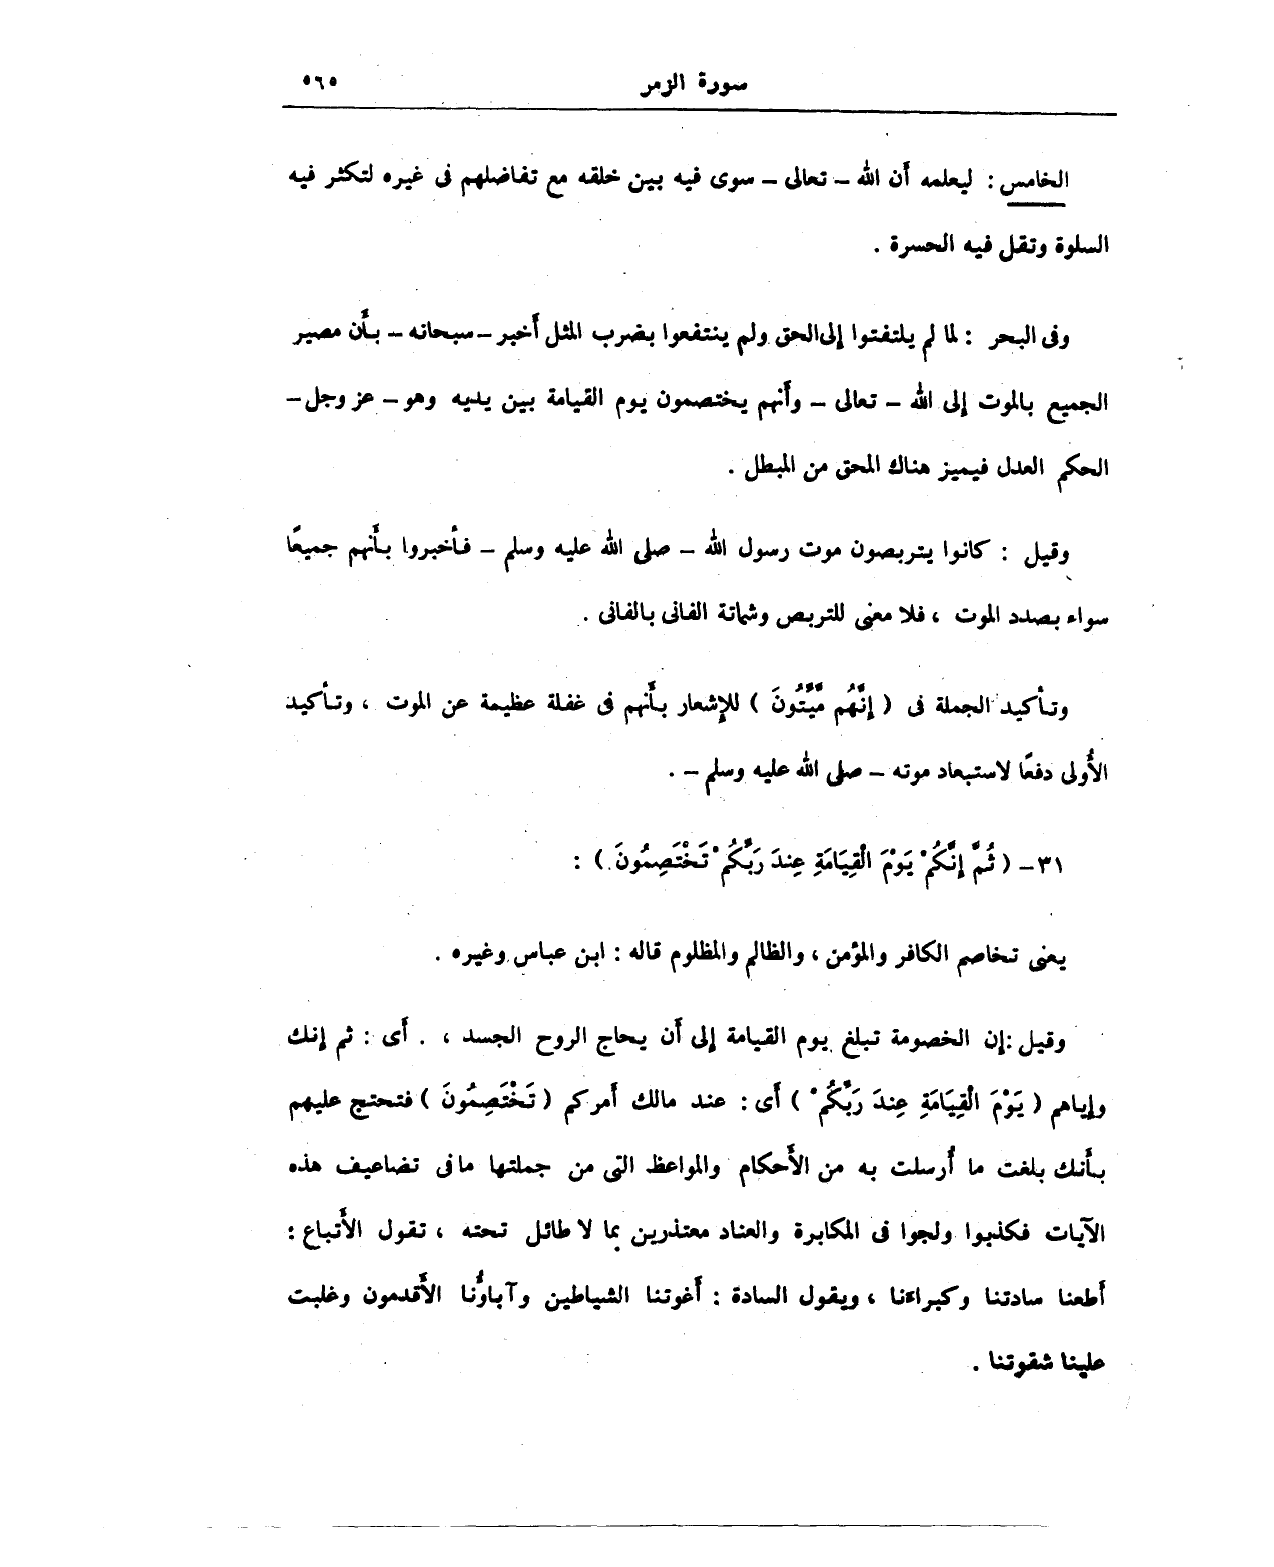 سورة الزمر ٥٦٥
الخامس : ليعلمه أن الله – تعالى – سوى فيه بين خلقه مع تفاضلهم فى غيره لتكثر فيه
السلوة وتقل فيه الحسرة .
وفى البحر : لما لم يلتفتوا إلى الحق ولم ينتفعوا بضرب المثل أخبر – سبحانه – بأن مصير
الجميع بالموت إلى الله – تعالى – وأنهم يختصمون يوم القيامة بين يديه وهو – عز وجل –
الحكم العدل فيميز هناك المحق من المبطل .
وقيل : كانوا يتربصون موت رسول الله – صلى الله عليه وسلم – فأخبروا بأنهم جميعًا
سواء بصدد الموت ، فلا معنى للتربص وشماتة الفانى بالفانى .
وتأكيد الجملة فى ( إِنَّهُم مَّيِّتُونَ ) للإشعار بأنهم فى غفلة عظيمة عن الموت ، وتأكيد
الأُولى دفعًا لاستبعاد موته – صلى الله عليه وسلم – .
٣١– ( ثُمَّ إِنَّكُمْ يَوْمَ الْقِيَامَةِ عِندَ رَبِّكُمْ تَخْتَصِمُونَ ) :
يعنى تخاصم الكافر والمؤمن ، والظالم والمظلوم قاله : ابن عباس وغيره .
وقيل :إن الخصومة تبلغ يوم القيامة إلى أن يحاج الروح الجسد ، . أى : ثم إنك
وإياهم ( يَوْمَ الْقِيَامَةِ عِندَ رَبِّكُمْ ) أى : عند مالك أمركم ( تَخْتَصِمُونَ ) فتحتج عليهم
بأنك بلغت ما أُرسلت به من الأحكام والمواعظ التى من جملتها ما فى تضاعيف هذه
الآيات فكذبوا ولجوا فى المكابرة والعناد معتذرين بما لا طائل تحته ، تقول الأتباع :
أطعنا سادتنا وكبراءنا ، ويقول السادة : أغوتنا الشياطين وآباؤُنا الأقدمون وغلبت
علينا شقوتنا .